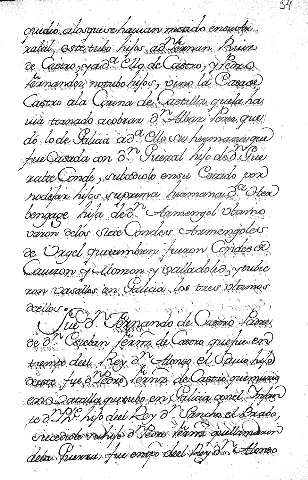 34
quedio a los que se hauian metido en
esta tubo hijos a Dn fernan Ruiz
de Castro, y a Da Ello de Castro, y Pero
fernandez, no tubo hijos, vino la Casa de
Castro a la Corona de Castilla, que la ha
uia tornado a cobrar Dn Albar Perez, que
dó lo de Galicia a Da Ello su hermana que
fue Casada con Dn Guiral hijo de Dn
Conde, subcedio en su Estado por
no dejar hijos su prima hermana Da
bengage hija de Dn Armengol Ultimo
varon de los siete Condes Armengoles
de Urgel que tambien fueron Condes de
Cauezon y Monzon y Valladolid, y tubie
ron vasallos en Galicia los tres Ultimos
de ellos.
Fue Dn Fernando de Castro Padre
de Dn Esteban ferrz de Castro que fue en
tiempo del Rey Dn Alonso el Sauio hijo
fue Dn Pedro ferrz de Castro que murio
en una Batalla que tubo en Galicia con el Infan
te Dn Phe hijo del Rey Dn Sancho el Brabo,
subcediole su hijo Dn Pedro ferrz que llamaron
de la Guerra fue en tpo del Rey Dn Alonso